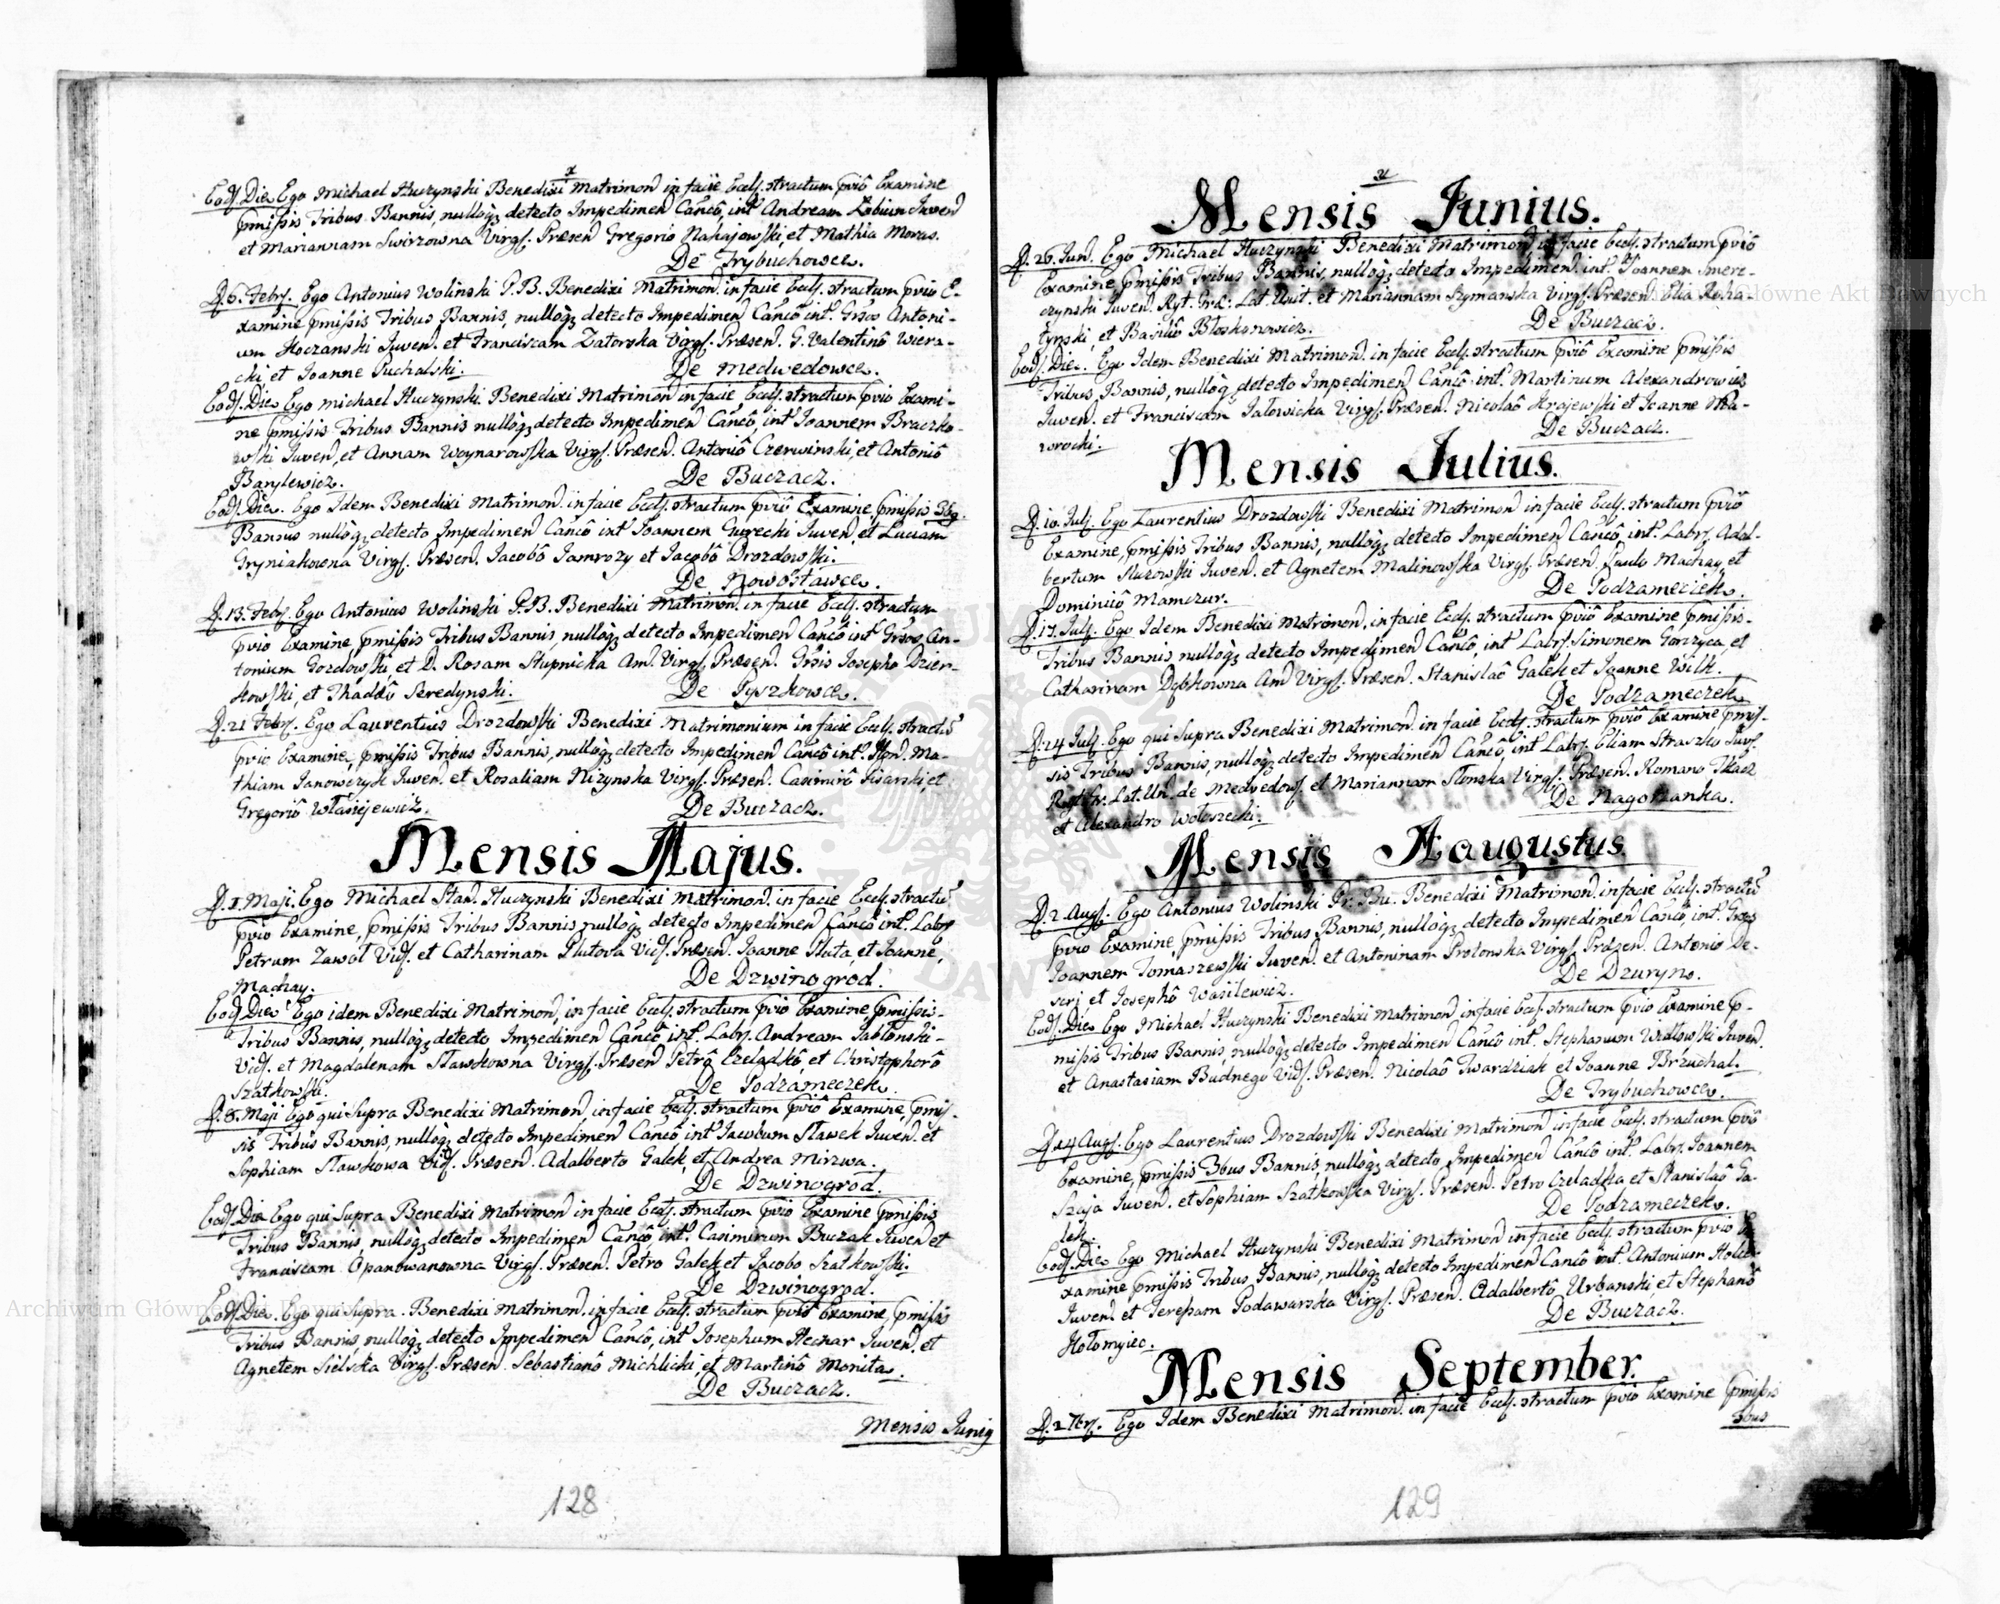 Eod. Die. Ego Michael Huczynski Benedixi Matrimon in facie Eccl. stractum pvio Examine
pmissis Tribus Bannis, nulloq; detecto Impedimen Canco, int Andream Lobium Iuven
et Mariannam Swirzowna Virg. Præsen Gregorio Nahajowski, et Mathia Morus.
De Trybuchowce.
D. 6. Febr. Ego Antonius Wolinski P.B. Benedixi Matrimon. in facie Eccl. stractum pvio E-
xamine pmissis Tribus Bannis, nulloq; detecto Impedimen Canco int. Grsos Antoni-
um Hoczanski Iuven. et Franciscam Zatorska Virg. Præsen. G. Valentino Wiera-
cki et Ioanne Suchalski.
De Medwedowce.
Eod. Die Ego Michael Huczynski Benedixi Matrimon in facie Eccl. stractum pvio Exami-
ne pmissis Tribus Bannis nulloq; detecto Impedimen Canco, int Ioannem Braczko-
wski Iuven, et Annam Woynarowska Virg. Præsen. Antonio Czerwinski, et Antonio
Barylewicz.
De Buczacz.
Eod. Die. Ego Idem Benedixi Matrimon. in facie Eccl. stractum pvio Examine, pmissis 3bg.
Bannis nulloq; detecto Impedimen Canco int Ioannem Gurecki Iuven, et Luciam
Gryniakowna Virg. Præsen. Iacobo Iamrozy et Iacobo Drozdowski.
De Nowostawce.
D. 13. Feb. Ego Antonius Wolinski P.B. Benedixi Matrimon. in facie Eccl. stractum
pvio Examine, pmissis Tribus Bannis, nulloq; detecto Impedimen Canco int Grsos An-
tonium Gozdowski, et D. Rosam Słupnicka Am. Virg. Præsen. Grsis Iosepho Dzier-
kowski, et Thaddæo Seredynski.
De Pyszkowce.
D. 21 Febr. Ego Laurentius Drozdowski Benedixi Matrimonium in facie Eccl. stractu
pvio Examine, pmissis Tribus Bannis, nulloq; detecto Impedimen Canco int. Hon. Ma-
thiam Ianowczyk Iuven. et Rosaliam Nizynska Virg. Præsen. Casimiro Pisarski, et
Gregorio Własiejewicz.
De Buczacz.
Mensis Majus.
D. 1. Maji. Ego Michael Stan. Huczynski Benedixi Matrimon. in facie Eccl. stractu
pvio Examine, pmissis Tribus Bannis nulloq; detecto Impedimen Canco int. Labr
Petrum Zawół Vid. et Catharinam Plutowa Vid. Præsen. Ioanne Pluta, et Ioanne,
Machay.
De Dzwinogrod.
Eod. Die Ego idem Benedixi Matrimon. in facie Eccl. stractum pvio Examine, pmissis-
Tribus Bannis, nulloq; detecto Impedimen Canco int. Labr. Andream Iabłonski-
Vid. et Magdalenam Sławkowna Virg. Præsen Petro Czeladko, et Christophoro
Szatkowski.
De Podzameczek.
D. 8. Maji Ego qui Supra Benedixi Matrimon in facie Eccl. stractum pvio Examine, pmis-
sis Tribus Bannis, nulloq; detecto Impedimen Canco, int Iacobum Sławek Iuven. et
Sophiam Sławkowa Vid. Præsen. Adalberto Galek, et Andrea Mirzwa.
De Dzwinogrod.
Eod. Die Ego qui Supra Benedixi Matrimon in facie Eccl. stractum pvio Examine pmissis
Tribus Bannis, nulloq; detecto Impedimen Canco, int. Casimirum Buczak Iuven et
Franciscam Opanowanowna Virg. Præsen. Petro Galek et Iacobo Szatkowski.
De Dzwinogrod.
Eod. Die. Ego qui Supra. Benedixi Matrimon. in facie Eccl. stractum pvio Examine, pmissis
Tribus Bannis, nulloq; detecto Impedimen Canco, int Iosephum Hecnar Iuven. et
Agnetem Sielska Virg. Præsen. Sebastiano Michlicki, et Martino Monita.
De Buczacz.
Mensis Iunig
128
Mensis Junius.
D. 26. Iun. Ego Michael Huczynski Benedixi Matrimon in facie Eccl. stractum pvio
Examine pmissis Tribus Bannis, nulloq; detecto Impedimen. int. Ioannem Smere-
czynski Iuven. Ryt. Græ: Lat. Unit. et Mariannam Szymanska Virg. Præsen. Elia Roha-
tynski, et Basilio Błoskanowicz.
De Buczacz.
Eod. Die. Ego Idem Benedixi Matrimon. in facie Eccl. stractum pvio Examine pmissis
Tribus Bannis, nulloq; detecto Impedimen Canco, int. Martinum Alexandrowicz
Iuven. et Franciscam Iałowicka Virg. Præsen. Nicolao Krajewski et Ioanne Na-
wrocki.
De Buczacz.
Mensis Julius.
D. 10. Julj. Ego Laurentius Drozdowski Benedixi Matrimon in facie Eccl. stractum pvio
Examine, pmissis Tribus Bannis, nulloq; detecto Impedimen Canco, int. Labr. Adal-
bertum Sluzowski Iuven. et Agnetem Malinowska Virg. Præsen. Paulo Machay, et
Dominico Mamczur.
De Podzameczek.
D. 17. Julj. Ego Idem Benedixi Matrimon. in facie Eccl. stractum pvio Examine pmissis-
Tribus Bannis, nulloq; detecto Impedimen Canco, int Labr. Simonem Gorzyca, et
Catharinam Dębkowna Am Virg. Præsen. Stanislao Galek et Ioanne Wilk.
De Podzameczek
D. 24 Julj. Ego qui Supra Benedixi Matrimon. in facie Eccl. stractum pvio Examine pmis-
sis Tribus Bannis, nulloq; detecto Impedimen Canco, int Labr. Eliam Straszko Iuv.
Ryt. Gr. Lat. Un. de Medvedow. et Mariannam Słonska Virg. Præsen. Romano Tkacz
et Alexandro Wołoszecki.
De Nagorzanka.
Mensis Aaugustus
D. 2. Aug. Ego Antonius Wolinski Pr. Bu. Benedixi Matrimon. in facie Eccl. stractu
pvio Examine pmissis Tribus Bannis, nulloq; detecto Impedimen Canco, int. Grsos
Ioannem Tomaszewski Iuven. et Antoninam Protowska Virg. Præsen. Antonio De-
seri et Iosepho Wasilewicz.
De Dzuryn.
Eod. Die Ego Michael Huczynski Benedixi Matrimon in facie Eccl. stractum pvio Examine p-
missis Tribus Bannis, nulloq; detecto Impedimen Canco int. Stephanum Widłowski Iuven.
et Anastasiam Budnego Vid. Præsen. Nicolao Twardziak et Ioanne Brzuchal.
De Trybuchowce.
D. 14 Aug. Ego Laurentius Drozdowski Benedixi Matrimon in facie Eccl. stractum pvio
Examine, pmissis 3bus Bannis, nulloq; detecto Impedimen Canco int. Labr. Ioannem
Szaja Iuven. et Sophiam Szatkowska Virg. Præsen. Petro Czeladka et Stanislao Ga-
lek.
De Podzameczek.
Eod. Die Ego Michael Huczynski Benedixi Matrimon in facie Eccl. stractum pvio E-
xamine pmissis Tribus Bannis, nulloq; detecto Impedimen Canco int. Antonium
Iuven. et Teressam Podawarska Virg. Præsen. Adalberto Urbanski, et Stephano
Hołomyiec.
De Buczacz.
Mensis September.
D. 2. 7br. Ego Idem Benedixi Matrimon. in facie Eccl. stractum pvio Examine pmissis
3bus
129
Archiwum Główne Akt Dawnych